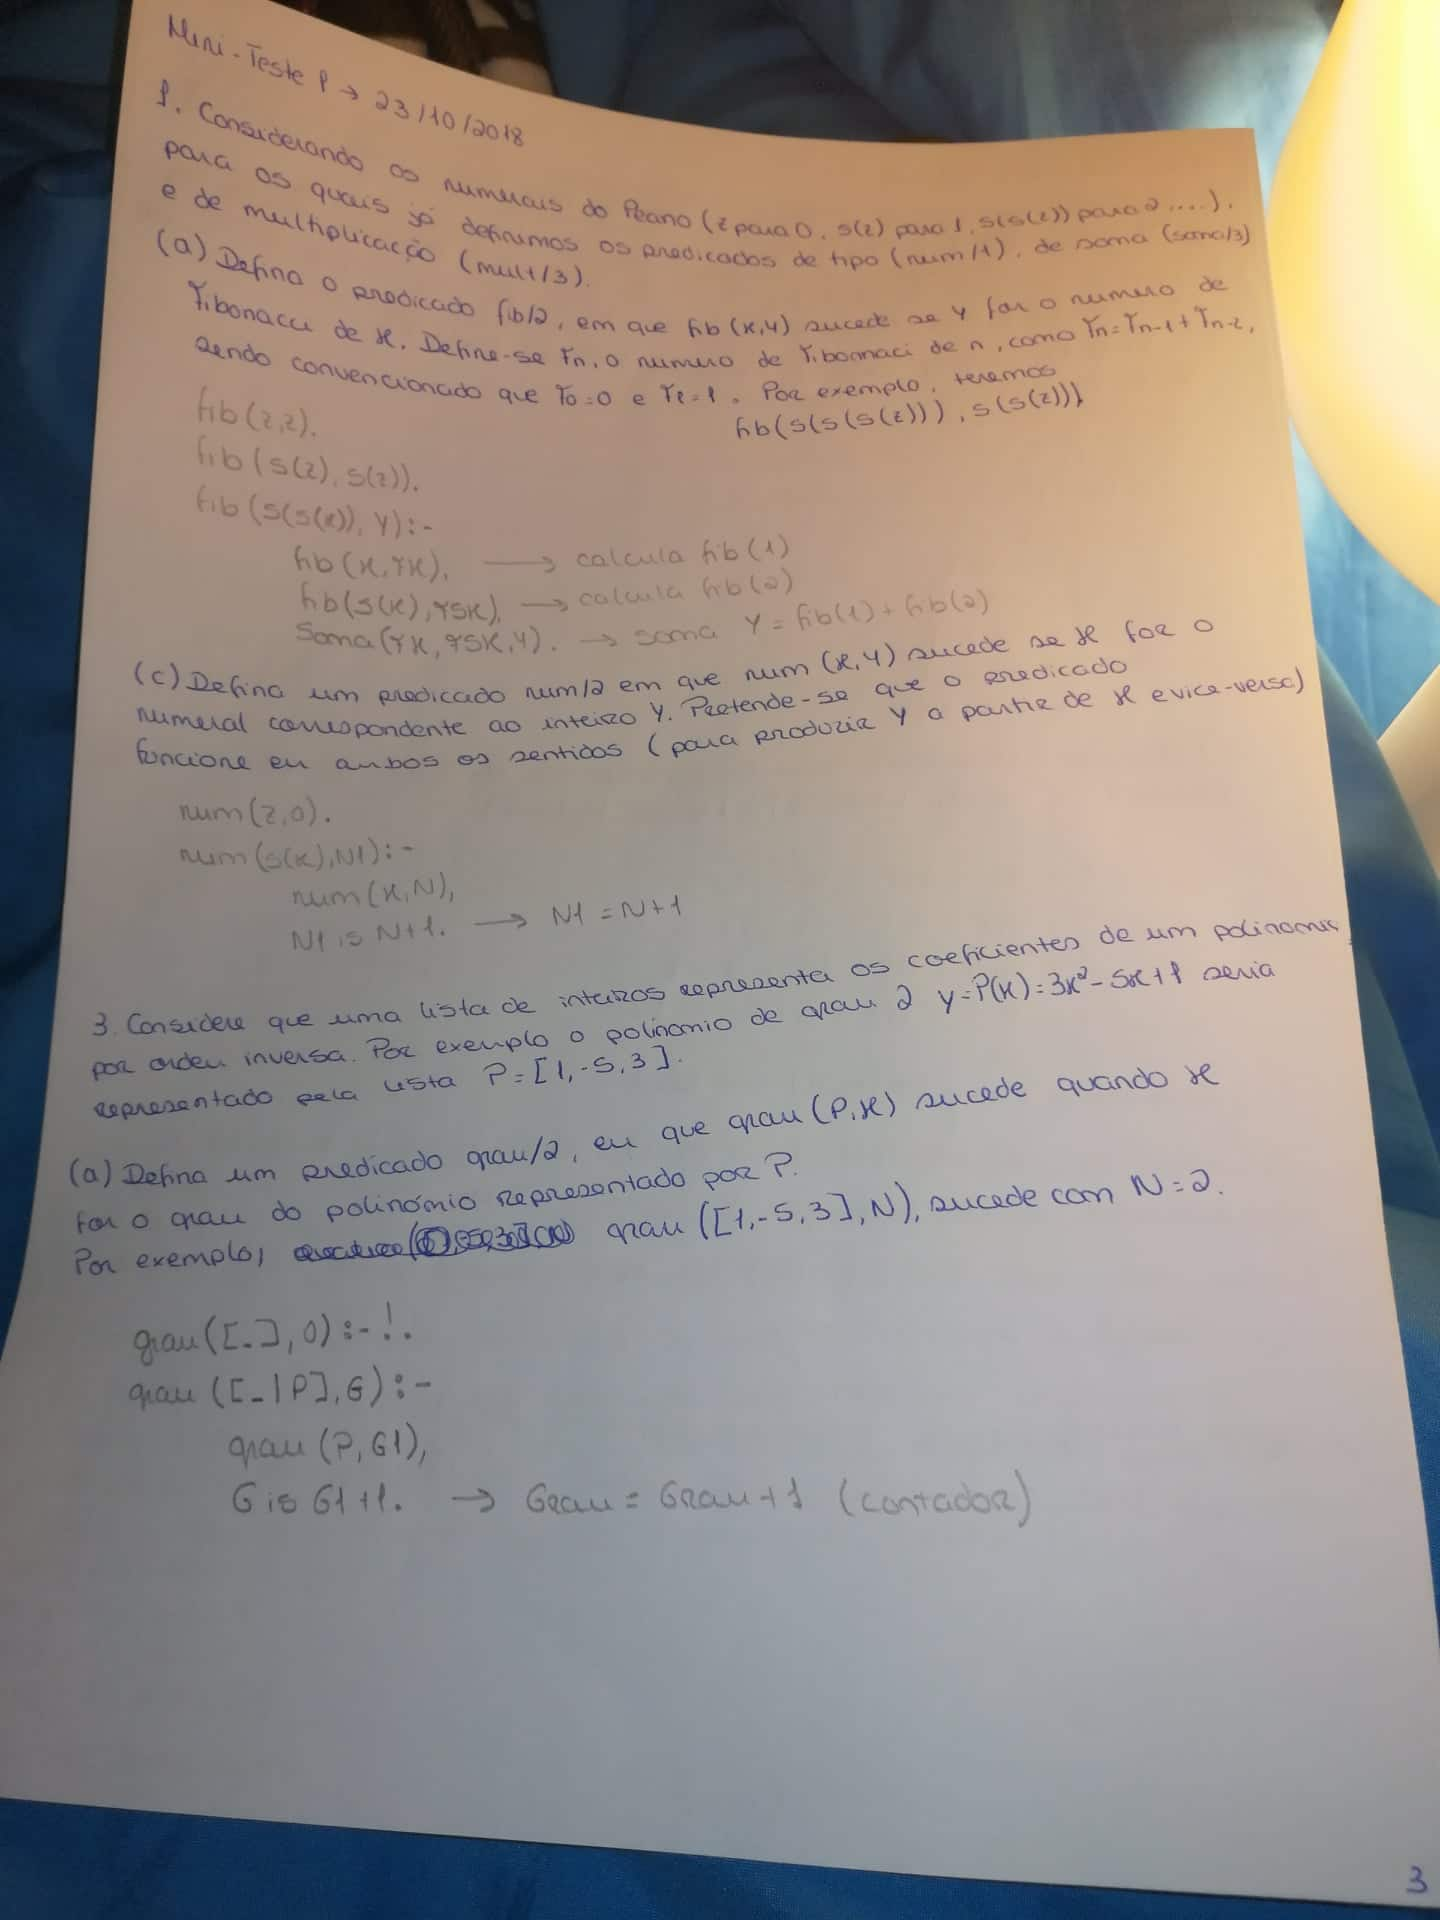 Mini-Teste 1 → 23/10/2018
1. Considerando os numerais do Peano (z para 0, s(z) para 1, s(s(z)) para 2 ....),
para os quais já definimos os predicados de tipo (num/1), de soma (soma/3)
e de multiplicação (mult/3).
(a) Defina o predicado fib/2, em que fib(X,Y) sucede se Y for o numero de
Fibonacci de X. Define-se Fn, o numero de Fibonnaci de n, como Fn=Fn-1+Fn-2,
sendo convencionado que F0=0 e F1=1. Por exemplo, teremos
fib(s(s(s(z))), s(s(z)))
fib(z,z).
fib(s(z), s(z)).
fib(s(s(X)), Y):-
fib(X,YX), → calcula fib(1)
fib(s(X),YSX), → calcula fib(2)
soma(YX, YSX,Y). → soma Y = fib(1)+fib(2)
(c) Defina um predicado num/2 em que num(X,Y) sucede se X for o
numeral correspondente ao inteiro Y. Pretende-se que o predicado
funcione em ambos os sentidos (para produzir Y a partir de X e vice-versa)
num(z,0).
num(s(X),N1):-
num(X,N),
N1 is N+1. → N1 = N+1
3. Considere que uma lista de inteiros representa os coeficientes de um polinomio,
por ordem inversa. Por exemplo o polinómio de grau 2 y=P(x)=3x²-5x+1 seria
representado pela lista P=[1,-5,3].
(a) Defina um predicado grau/2, em que grau(P,X) sucede quando X
for o grau do polinómio representado por P.
Por exemplo, grau([1,-5,3],N), sucede com N=2.
grau([_],0):-!.
grau([_|P],G):-
grau(P,G1),
G is G1+1. → Grau = Grau+1 (contador)
3